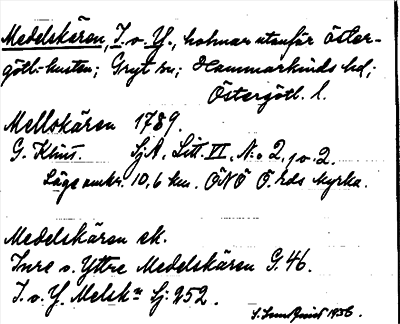 Medelskären, I. o. Y., holmar utanför Öster-
götl.-kusten; Gryt sn; Hammarkinds hd;
Östergötl. l.
Mellskären 1789.
G. Klint. Sj.A, Litt. VI, N:o 2, 1 o. 2.
Läge omkr. 10,6 km. ÖNÖ Ö. rds kyrka.
Medelskären ek.
Inre o. Yttre Medelskären G. 46.
I. o. Y. Melsk:n Sj. 252.
1936.